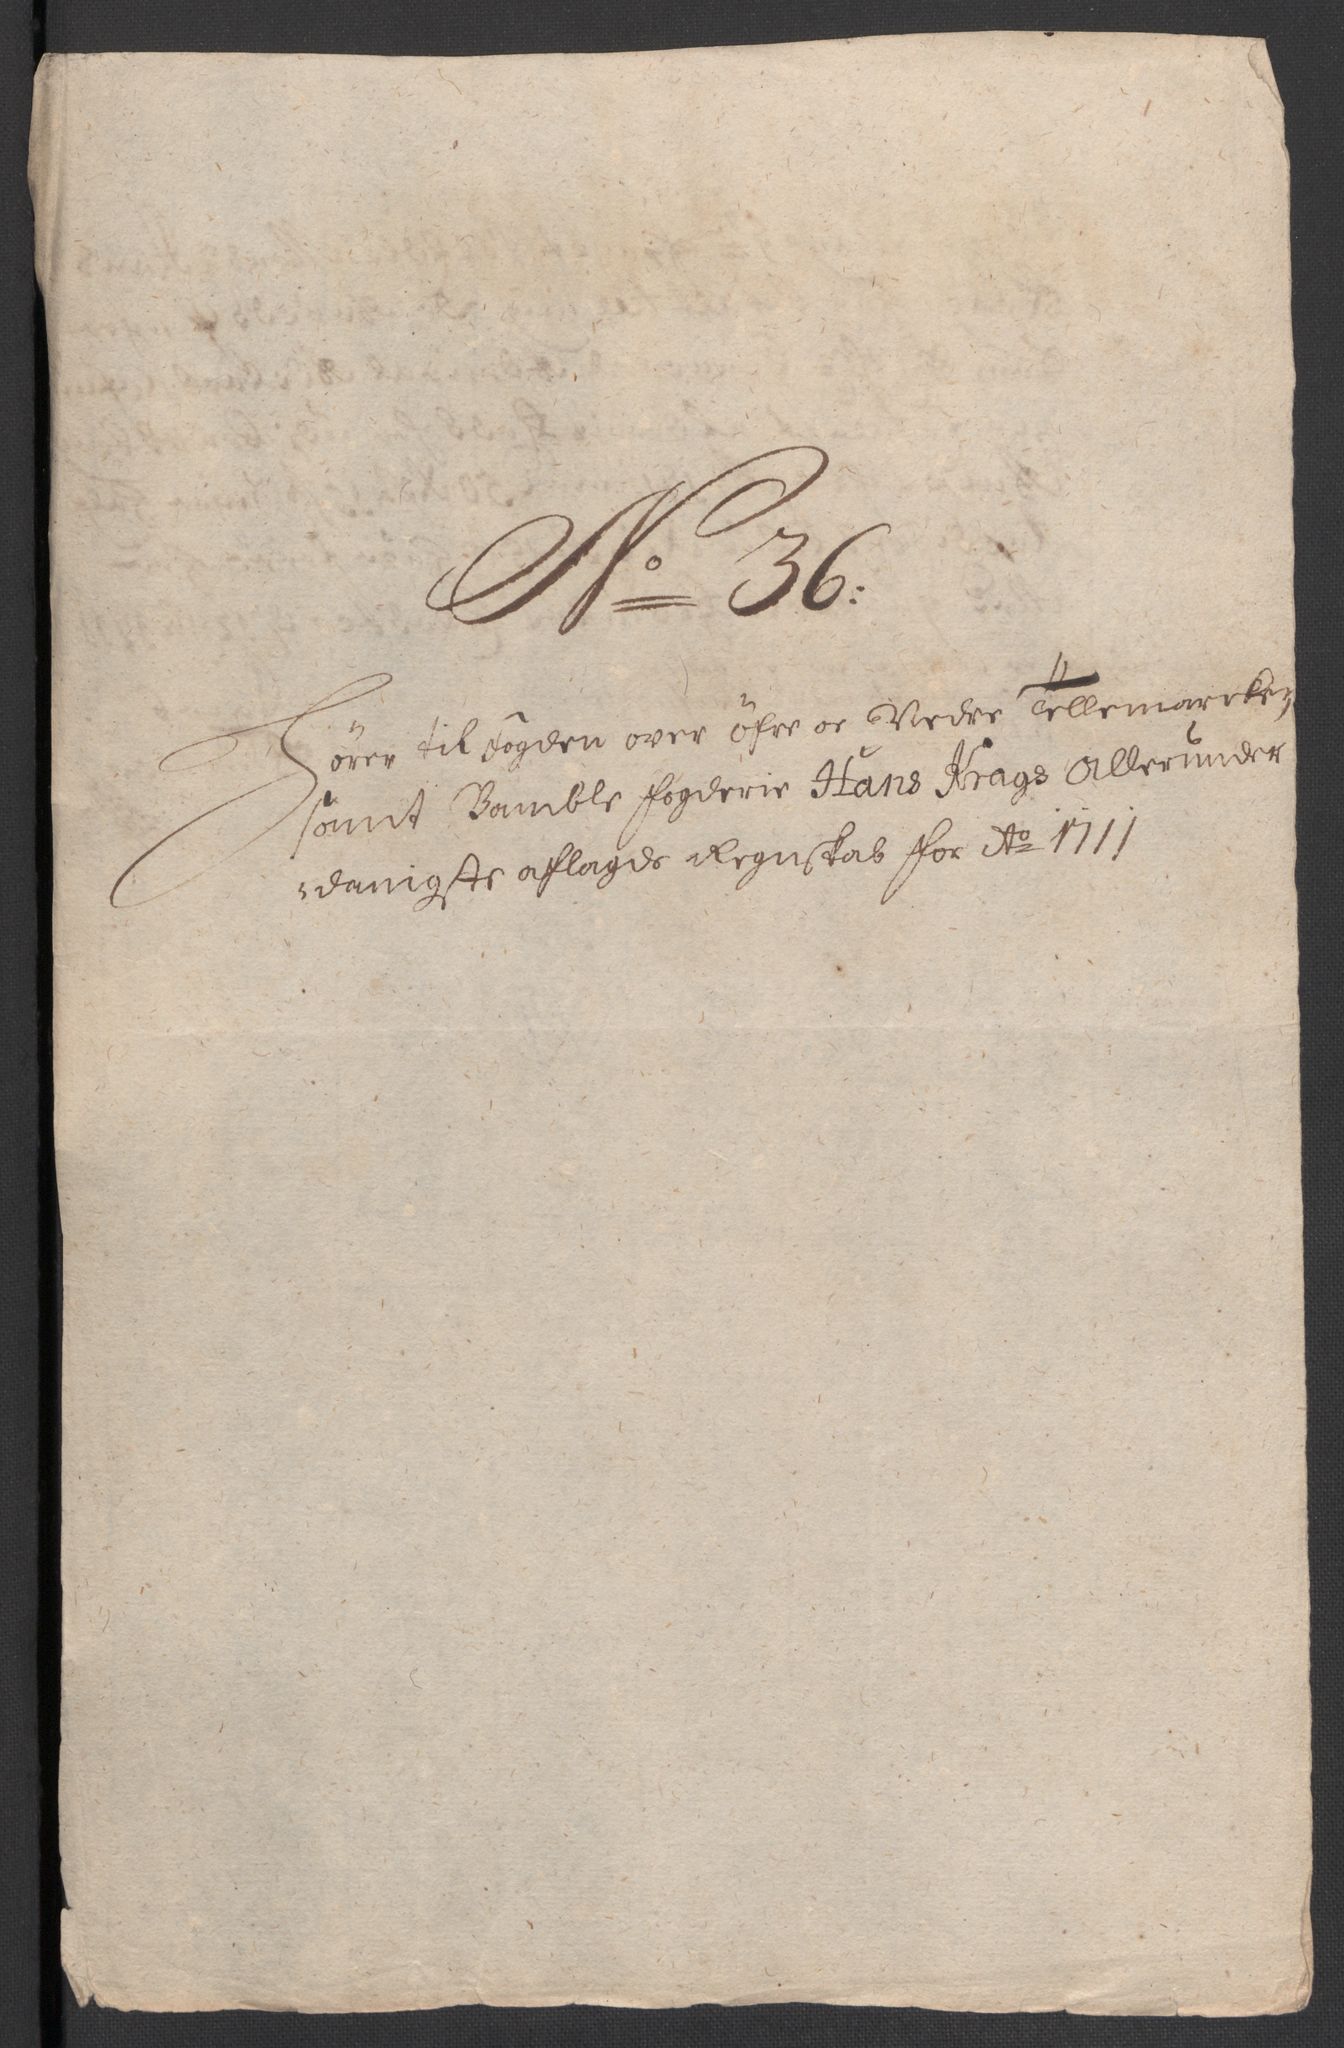 No 36:
Hörer til fogden over öfre oc Nedre Tellemarcken,
samt Bamble fogderie Hans Krags Allerunder
danigste aflagde Regnskab for Ao 1711